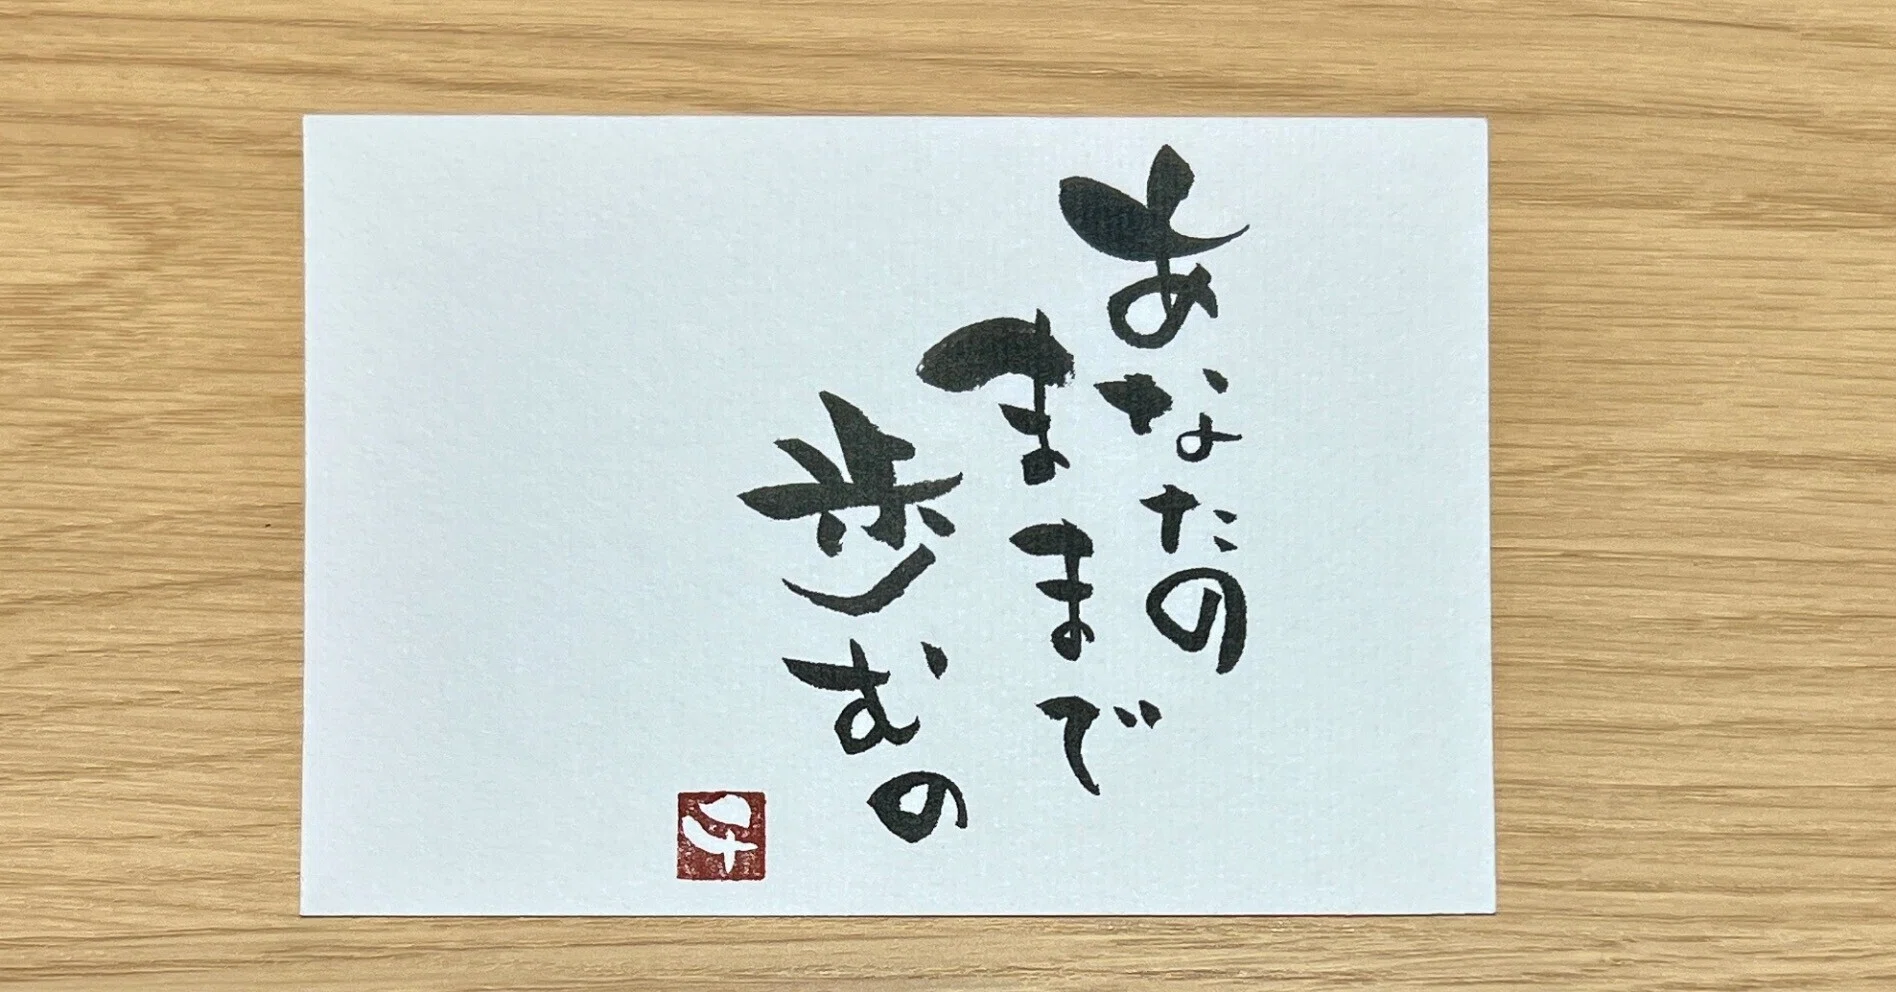 あなたの
ままで
歩むの